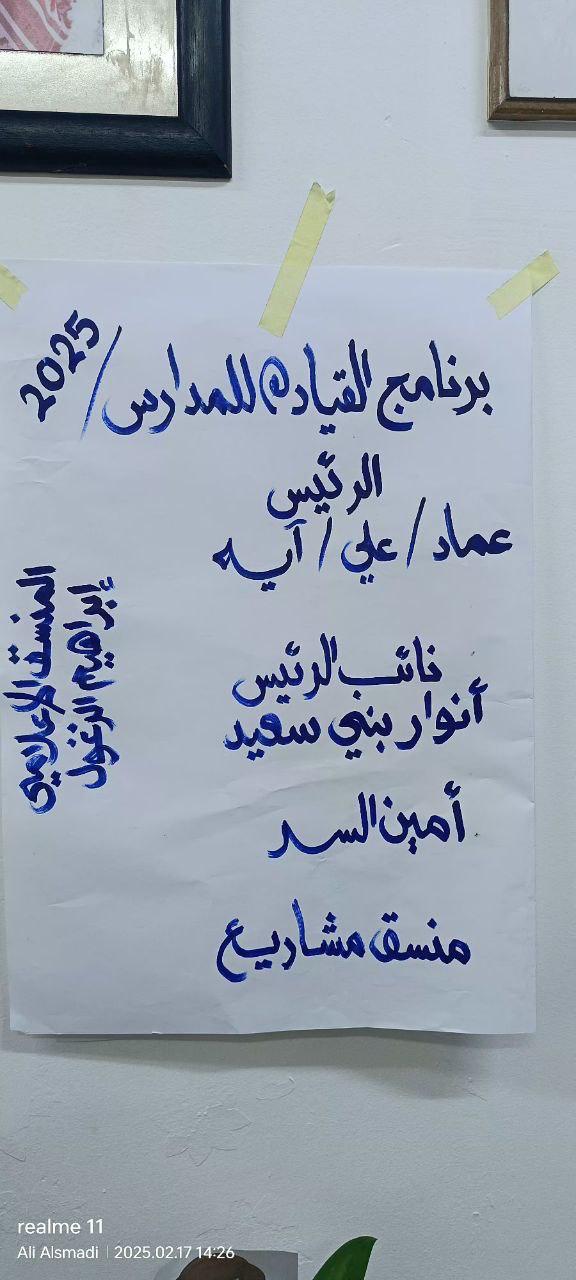 برنامج القياده للمدارس / 2025
الرئيس
عماد / علي / آيه
نائب الرئيس
أنوار بني سعيد
أمين السر
منسق مشاريع
المنسق الإعلامي
إبراهيم الزغول
realme 11
Ali Alsmadi | 2025.02.17 14:26